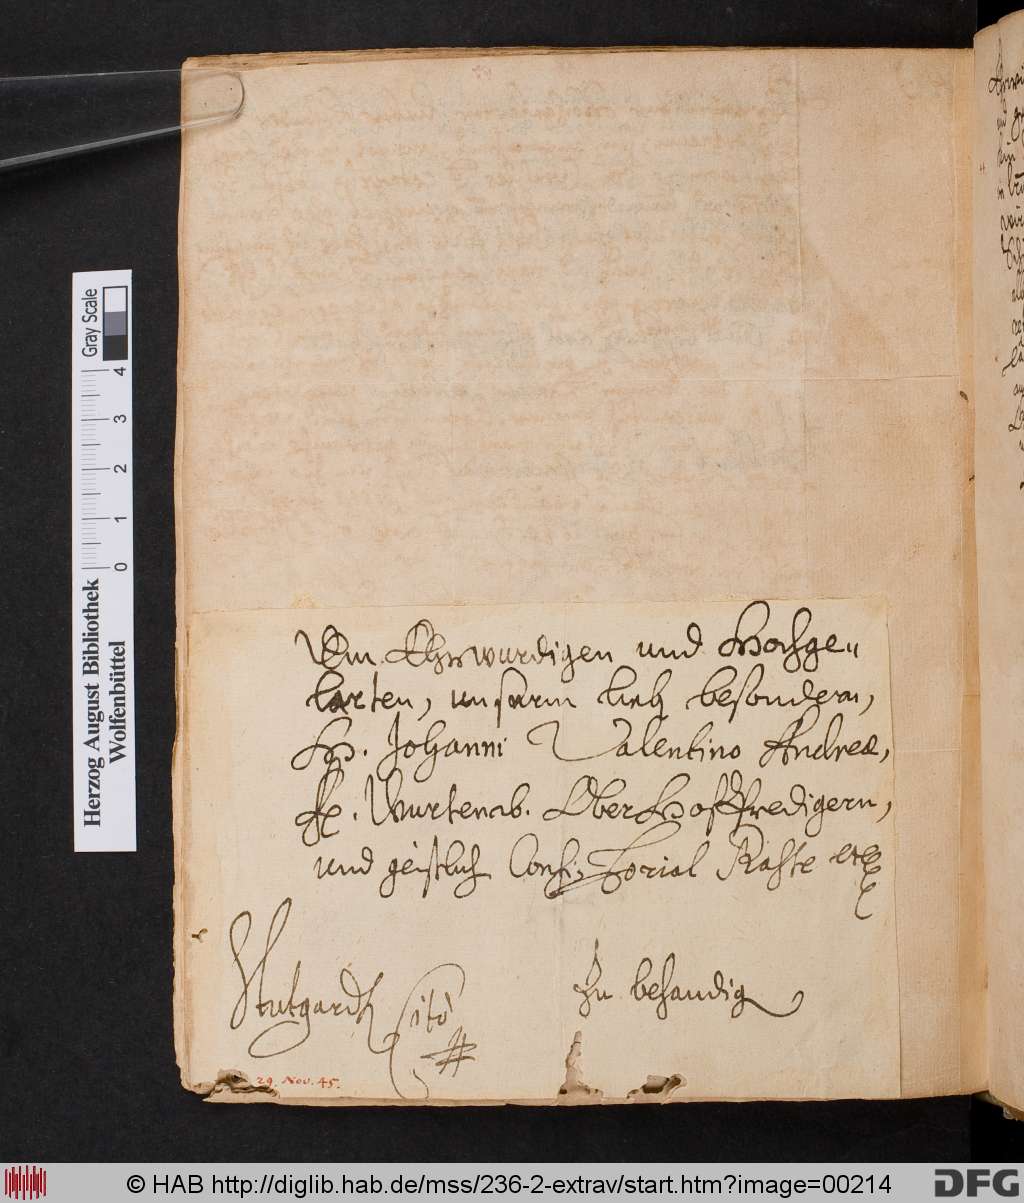 Dem Ehrwürdigen und Hochge„
larten, unserm lieb besondern,
H. Johanni Valentino Andreæ,
F. Würtemb. Ober Hoff Predigern,
und geistlich Consi„storial Rahte etc
Stutgardt
Cito
Zu behandig
29. Nov. 45.
Herzog August Bibliothek
Wolfenbüttel
0 1 2 3 4
Gray Scale
© HAB http://diglib.hab.de/mss/236-2-extrav/start.htm?image=00214
DFG